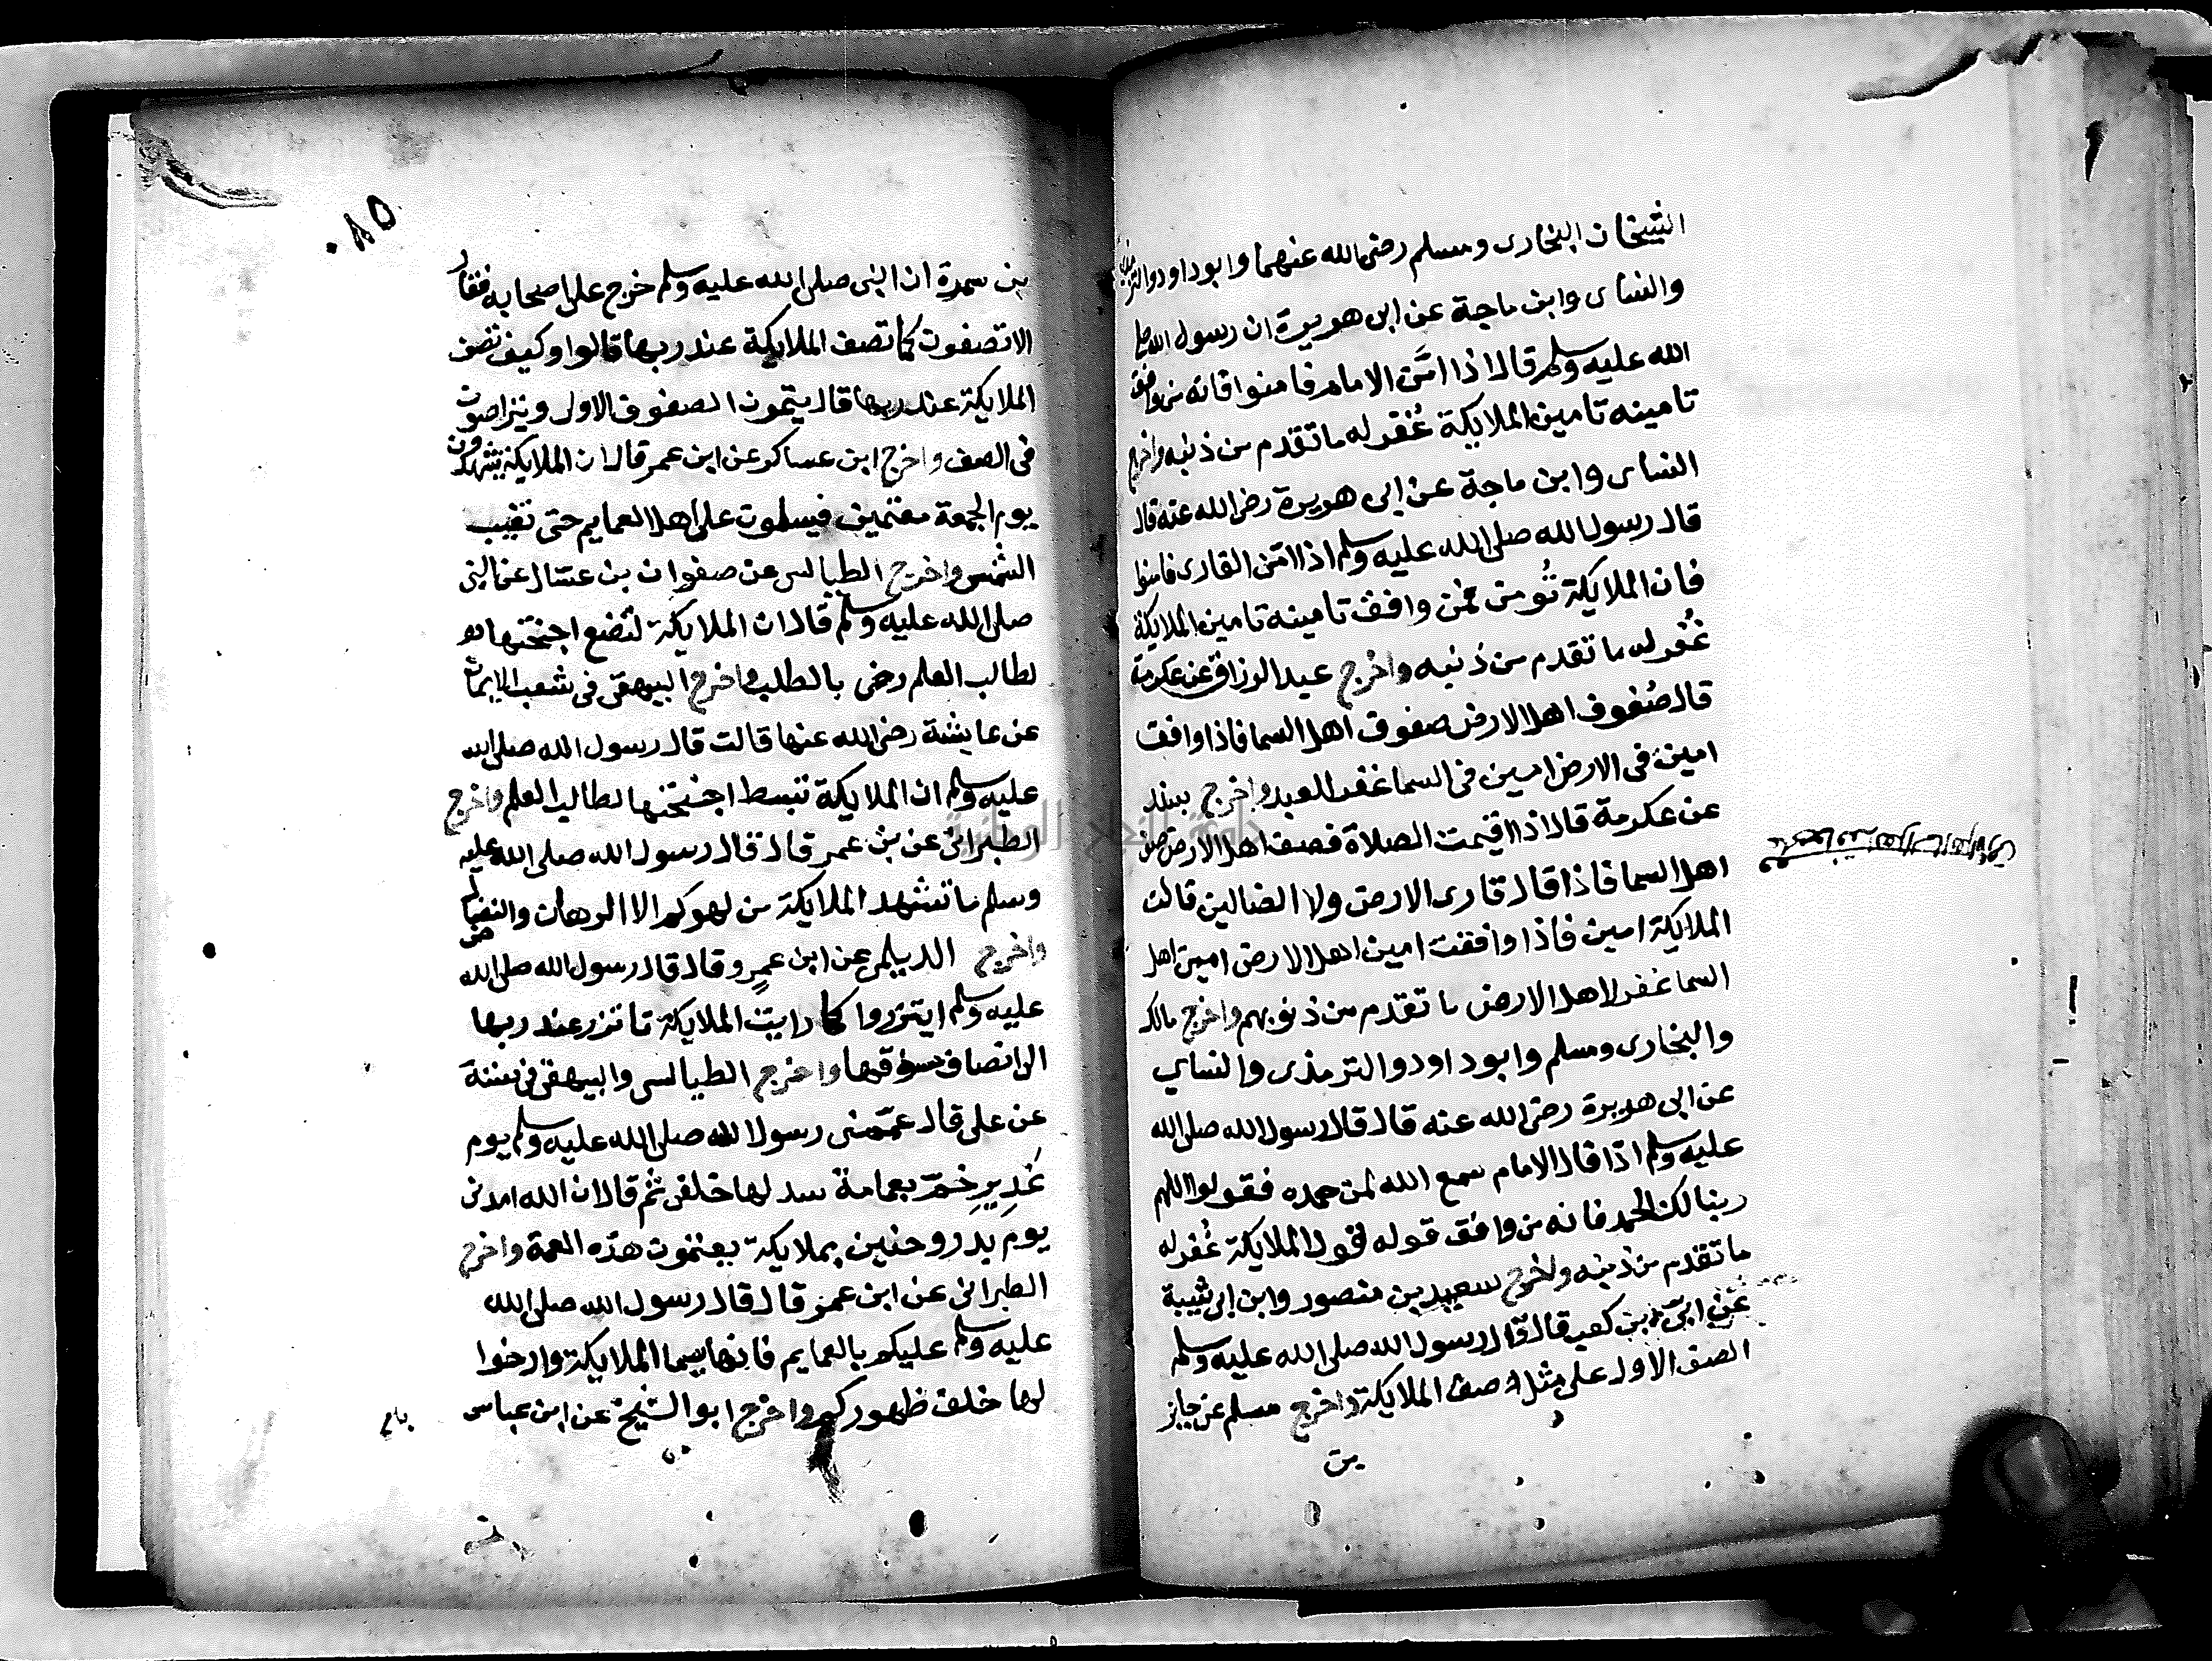 الشيخان البخارى ومسلم رضى الله عنهما وابوداودوالترمذى
والنساى وابن ماجة عن ابى هريرة ان رسول الله صلى
الله عليه وسلم قال اذا امَّن الامام فامنوا فانه من وافق
تامينه تامين الملايكة غُفر له ما تقدم من ذنبه واخرج
النساى وابن ماجة عن ابى هريرة رضى الله عنه قال
قال رسول الله صلى الله عليه وسلم اذا امّن القارى فامنوا
فان الملايكة تُومن فمن وافق تامينه تامين الملايكة
غُفر له ما تقدم من ذنبه واخرج عبد الرزاق عن عكرمة
قال صُفوف اهل الارض صفوف اهل السما فاذا وافق
امين فى الارض امين فى السما غفر للعبد واخرج بسند
عن عكرمة قال اذا اقيمت الصلاة فصف اهل الارض صف
اهل السما فاذا قال قارى الارض ولا الضالين قالت
الملايكة امين فاذا وافقت امين اهل الارض امين اهل
السما غفر لاهل الارض ما تقدم من ذنوبهم واخرج مالك
والبخارى ومسلم وابوداودوالترمذى والنساي
عن ابى هريرة رضى الله عنه قال قال رسول الله صلى الله
عليه وسلم اذا قال الامام سمع الله لمن حمده فقولوا اللهم
ربنا لك الحمد فانه من وافق قوله قول الملايكة غُفر له
ما تقدم من ذنبه واخرج سعيد بن منصور وابن ابى شيبة
عن ابىّ بن كعب قال قال رسول الله صلى الله عليه وسلم
الصف الاول على مثل صف الملايكة واخرج مسلم عن جابر
بن
٨٥
بن سمرة ان النبى صلى الله عليه وسلم خرج على اصحابه فقال
الا تصفون كما تصف الملايكة عند ربها قالوا وكيف تصف
الملايكة عند ربها قال يتمون الصفوف الاول ويتراصون
فى الصف واخرج ابن عساكر عن ابن عمر قال ان الملايكة يشهدون
يوم الجمعة معتمين فيسلمون على اهل العمايم حتى تغيب
الشمس واخرج الطيالسى عن صفوان بن عسال عن النبى
صلى الله عليه وسلم قال ان الملايكة لتضع اجنحتها
لطالب العلم رضى بالطلب واخرج البيهقى فى شعب الايمان
عن عايشة رضى الله عنها قالت قال رسول الله صلى الله
عليه وسلم ان الملايكة تبسط اجنحتها لطالب العلم واخرج
الطبرانى عن بن عمر قال قال رسول الله صلى الله عليه
وسلم ما تشهد الملايكة من لهوكم الا الرهان والنضال
واخرج الديلمى عن ابن عمرو قال قال رسول الله صلى الله
عليه وسلم ايتزروا كما رايت الملايكة تاتزر عند ربها
الى انصاف سوقها واخرج الطيالسى والبيهقى فى سننه
عن على قال عممنى رسول الله صلى الله عليه وسلم يوم
غَدِيرِ خُمّ بعمامة سدلها خلفى ثم قال ان الله امدنى
يوم بدر وحنين بملايكة يعتمون هذه العمة واخرج
الطبرانى عن ابن عمر قال قال رسول الله صلى الله
عليه وسلم عليكم بالعمايم فانها سيما الملايكة وارخوا
لها خلف ظهوركم واخرج ابو الشيخ عن ابن عباس